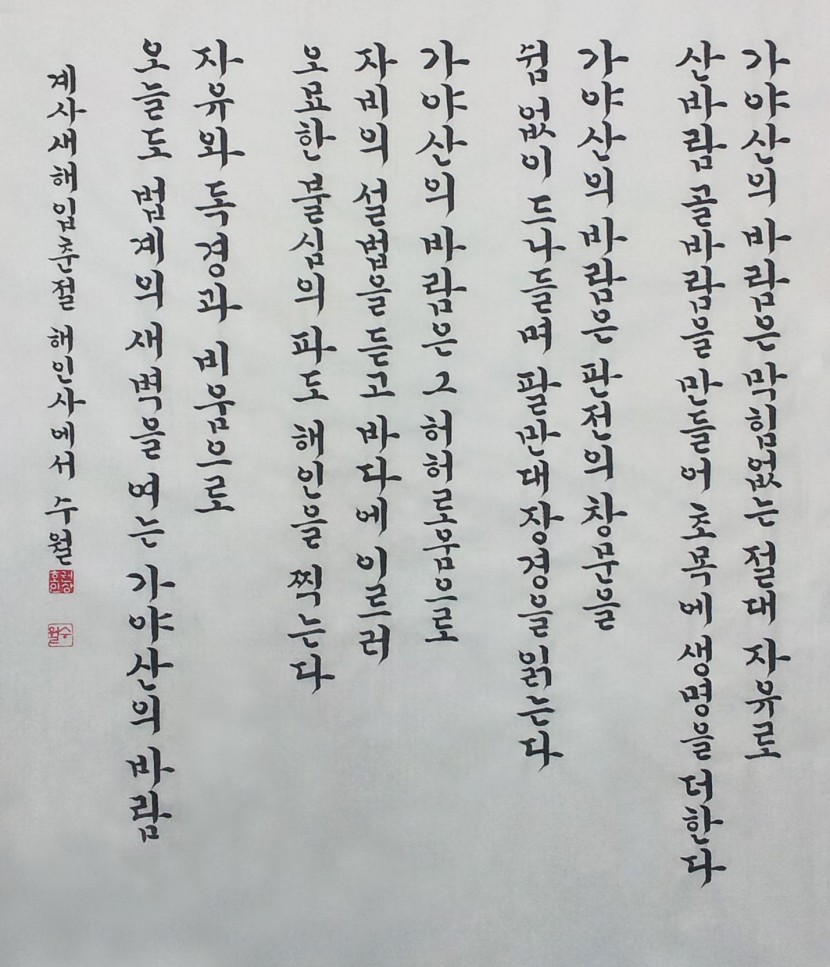 가야산의 바람은 막힘없는 절대 자유로
산바람 골바람을 만들어 초목에 생명을 더한다
가야산의 바람은 판전의 창문을
쉼 없이 드나들며 팔만대장경을 읽는다
가야산의 바람은 그 허허로움으로
자비의 설법을 듣고 바다에 이르러
오묘한 불심의 파도 해인을 찍는다
자유와 독경과 비움으로
오늘도 법계의 새벽을 여는 가야산의 바람
계사새해입춘절 해인사에서 수월
수월